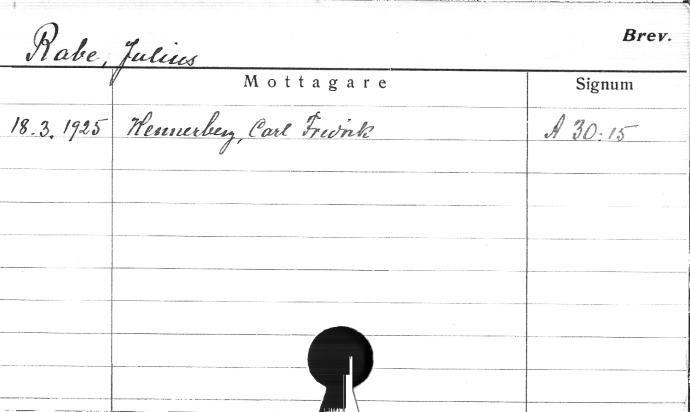 Brev.
Rabe, Julius
Mottagare Signum
18.3.1925 Hennerberg, Carl Fredrik A 30:15